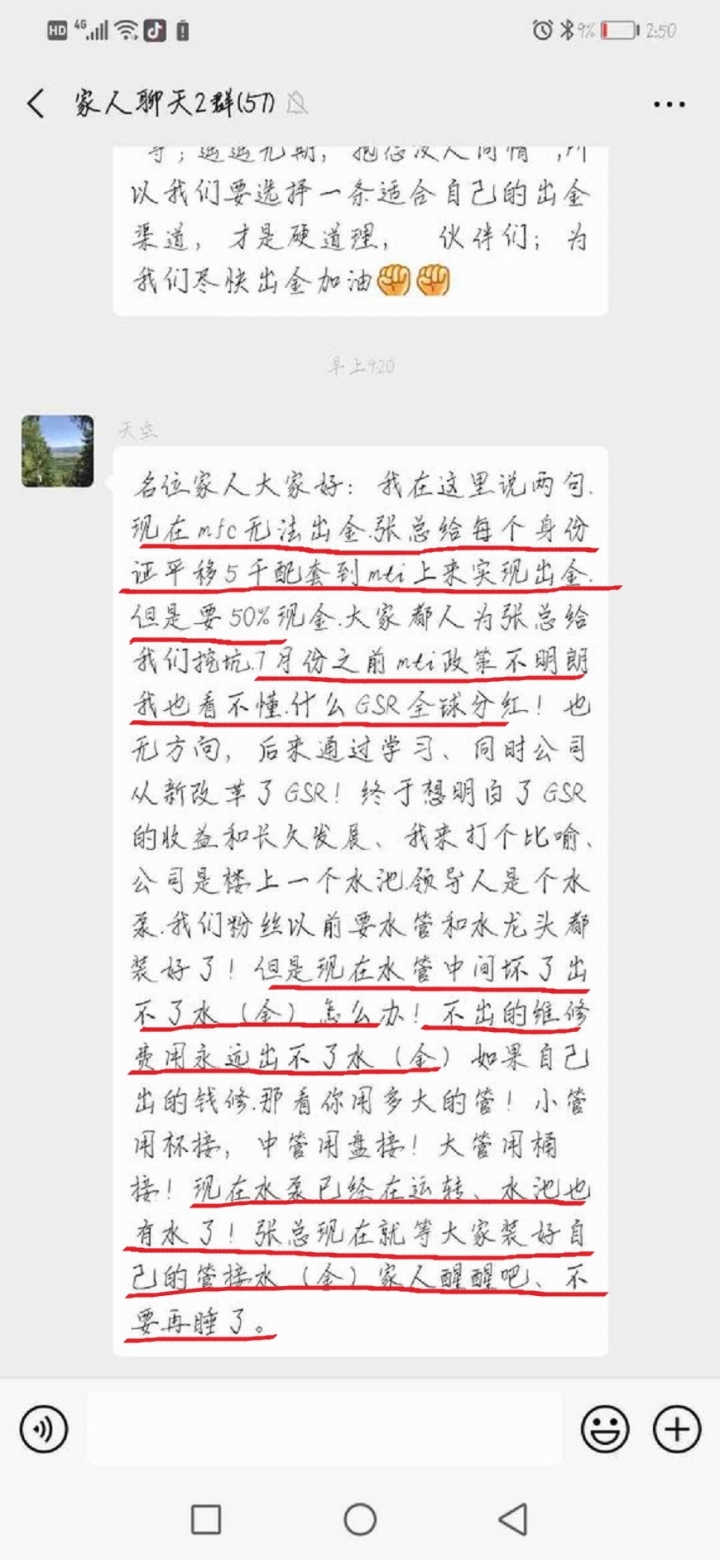 HD 4G 9% 2:50
家人聊天2群(57)
以我们要选择一条适合自己的出金
渠道，才是硬道理， 伙伴们；为
我们尽快出金加油✊✊
早上9:20
天空
名位家人大家好：我在这里说两句.
现在mfc无法出金.张总给每个身份
证平移5千配套到mti上来实现出金.
但是要50%现金.大家都人为张总给
我们挖坑.7月份之前mti政策不明朗
我也看不懂.什么GSR全球分红！也
无方向，后来通过学习、同时公司
从新改革了GSR！终于想明白了GSR
的收益和长久发展、我来打个比喻、
公司是楼上一个水池.领导人是个水
泵.我们粉丝以前要水管和水龙头都
装好了！但是现在水管中间坏了出
不了水（金）怎么办！不出的维修
费用永远出不了水（金）如果自己
出的钱修.那看你用多大的管！小管
用杯接，中管用盘接！大管用桶
接！现在水泵已经在运转、水池也
有水了！张总现在就等大家装好自
己的管接水（金）家人醒醒吧、不
要再睡了。